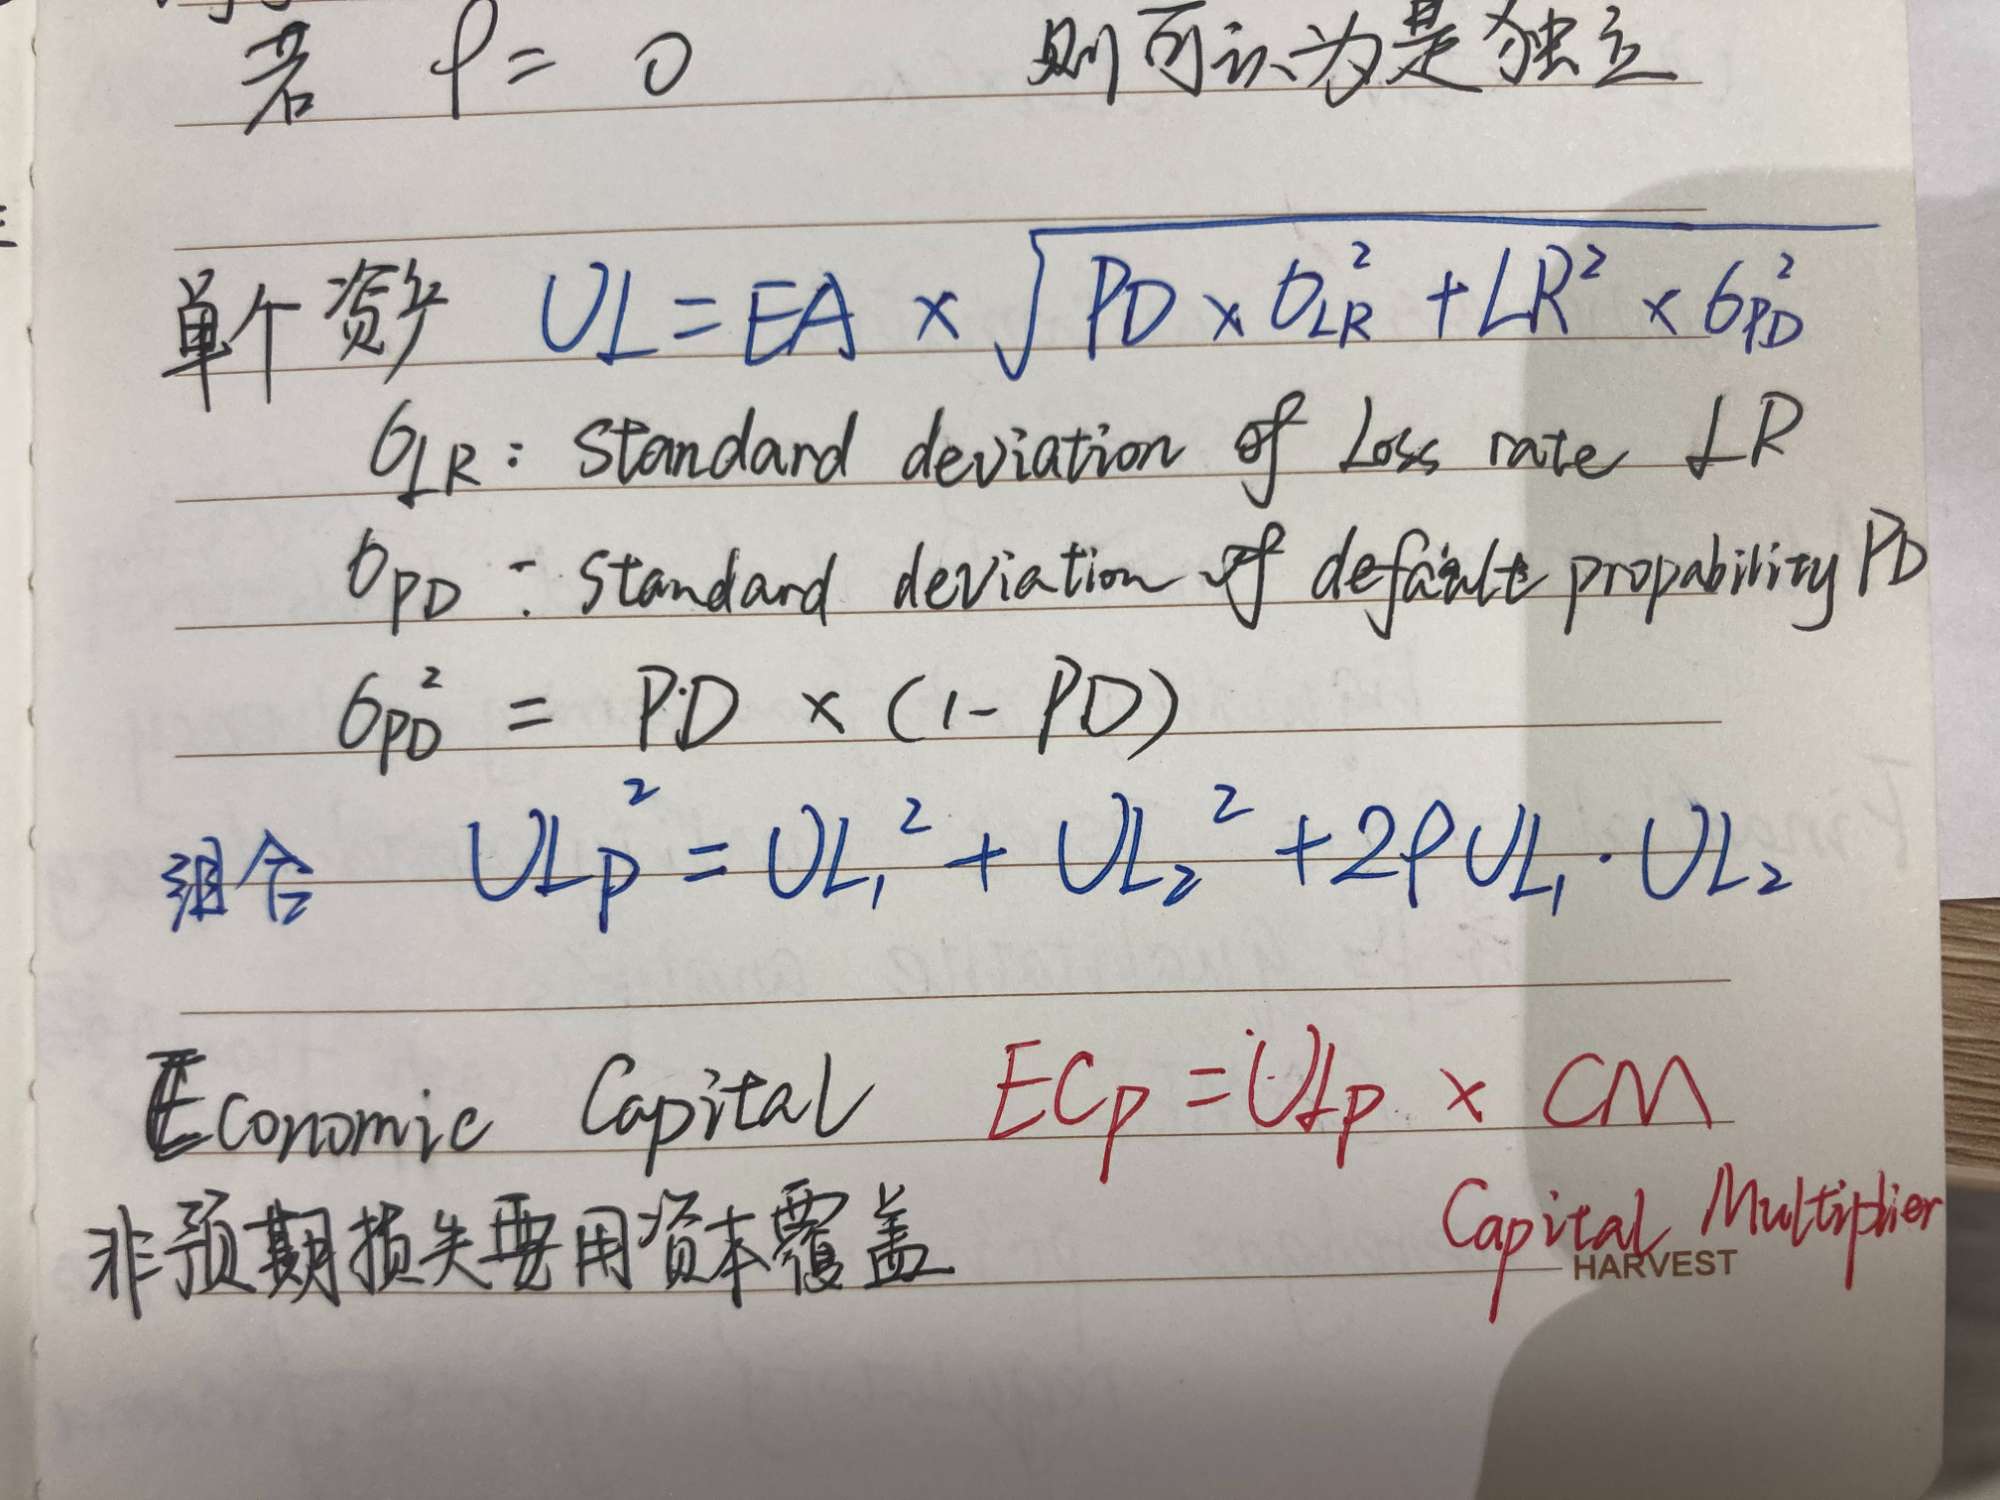 若 ρ = 0 则可认为是独立
单个资产 UL = EA × √(PD × σ_LR² + LR² × σ_PD²)
σ_LR : Standard deviation of Loss rate LR
σ_PD : Standard deviation of default propability PD
σ_PD² = PD × (1 - PD)
组合 UL_P² = UL₁² + UL₂² + 2ρUL₁ · UL₂
Economic Capital EC_P = UL_P × CM
Capital Multiplier
非预期损失要用资本覆盖
HARVEST